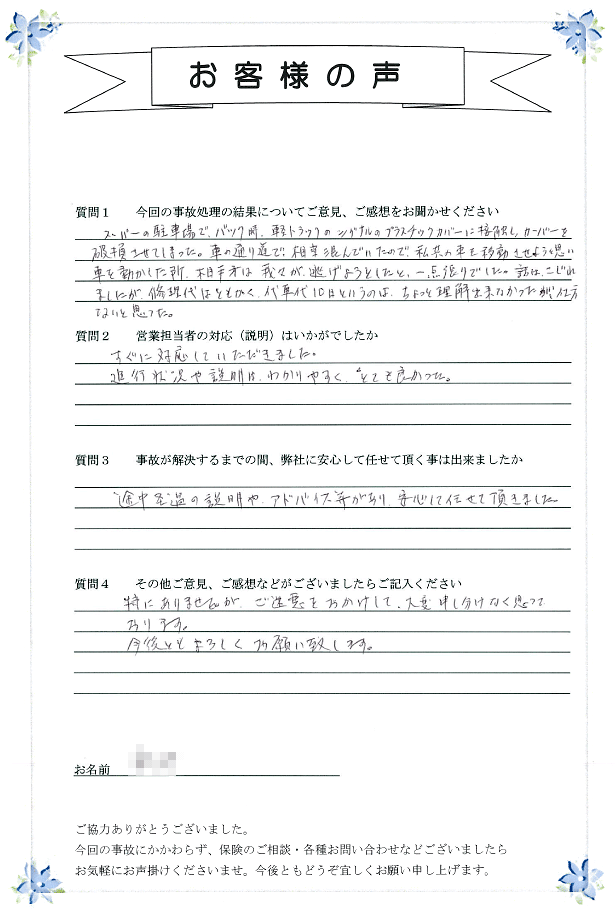 お客様の声
質問１　今回の事故処理の結果についてご意見、ご感想をお聞かせください
スーパーの駐車場で、バック時、軽トラックのシグナルのプラスチックカバーに接触し、カーバーを
破損させてしまった。車の通り道で、相当混んでいたので、私共が車を移動させようと思い
車を動かした所、相手方は我々が、逃げようとしたと、一点張りでした。話は、こじれ
ましたが、修理代はともかく、代車代10日というのは、ちょっと理解出来なかったが仕方
ないと思った。
質問２　営業担当者の対応（説明）はいかがでしたか
すぐに対応していただきました。
進行状況や説明は、わかりやすく、とても良かった。
質問３　事故が解決するまでの間、弊社に安心して任せて頂く事は出来ましたか
途中経過の説明や、アドバイス等があり、安心して任せて頂きました
質問４　その他ご意見、ご感想などがございましたらご記入ください
特にありませんが、ご迷惑をおかけして、大変申し分けなく思って
おります。
今後ともよろしくお願い致します。
お名前
ご協力ありがとうございました。
今回の事故にかかわらず、保険のご相談・各種お問い合わせなどございましたら
お気軽にお声掛けくださいませ。今後ともどうぞ宜しくお願い申し上げます。